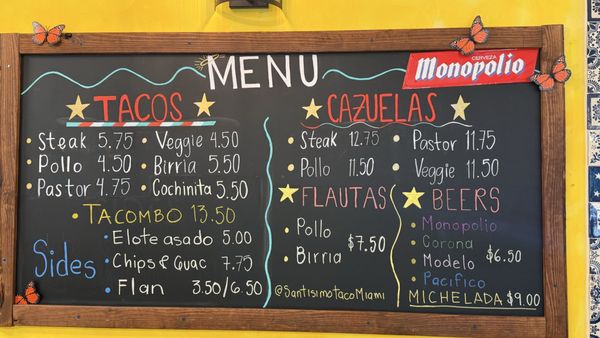 MENU
CERVEZA
Monopolio
TACOS
Steak 5.75
Pollo 4.50
Pastor 4.75
Veggie 4.50
Birria 5.50
Cochinita 5.50
TACOMBO 13.50
Sides
Elote asado 5.00
Chips & Guac 7.75
Flan 3.50/6.50
CAZUELAS
Steak 12.75
Pollo 11.50
Pastor 11.75
Veggie 11.50
FLAUTAS
Pollo
Birria
$7.50
@SantisimoTacoMiami
BEERS
Monopolio
Corona
Modelo
Pacifico
$6.50
MICHELADA $9.00